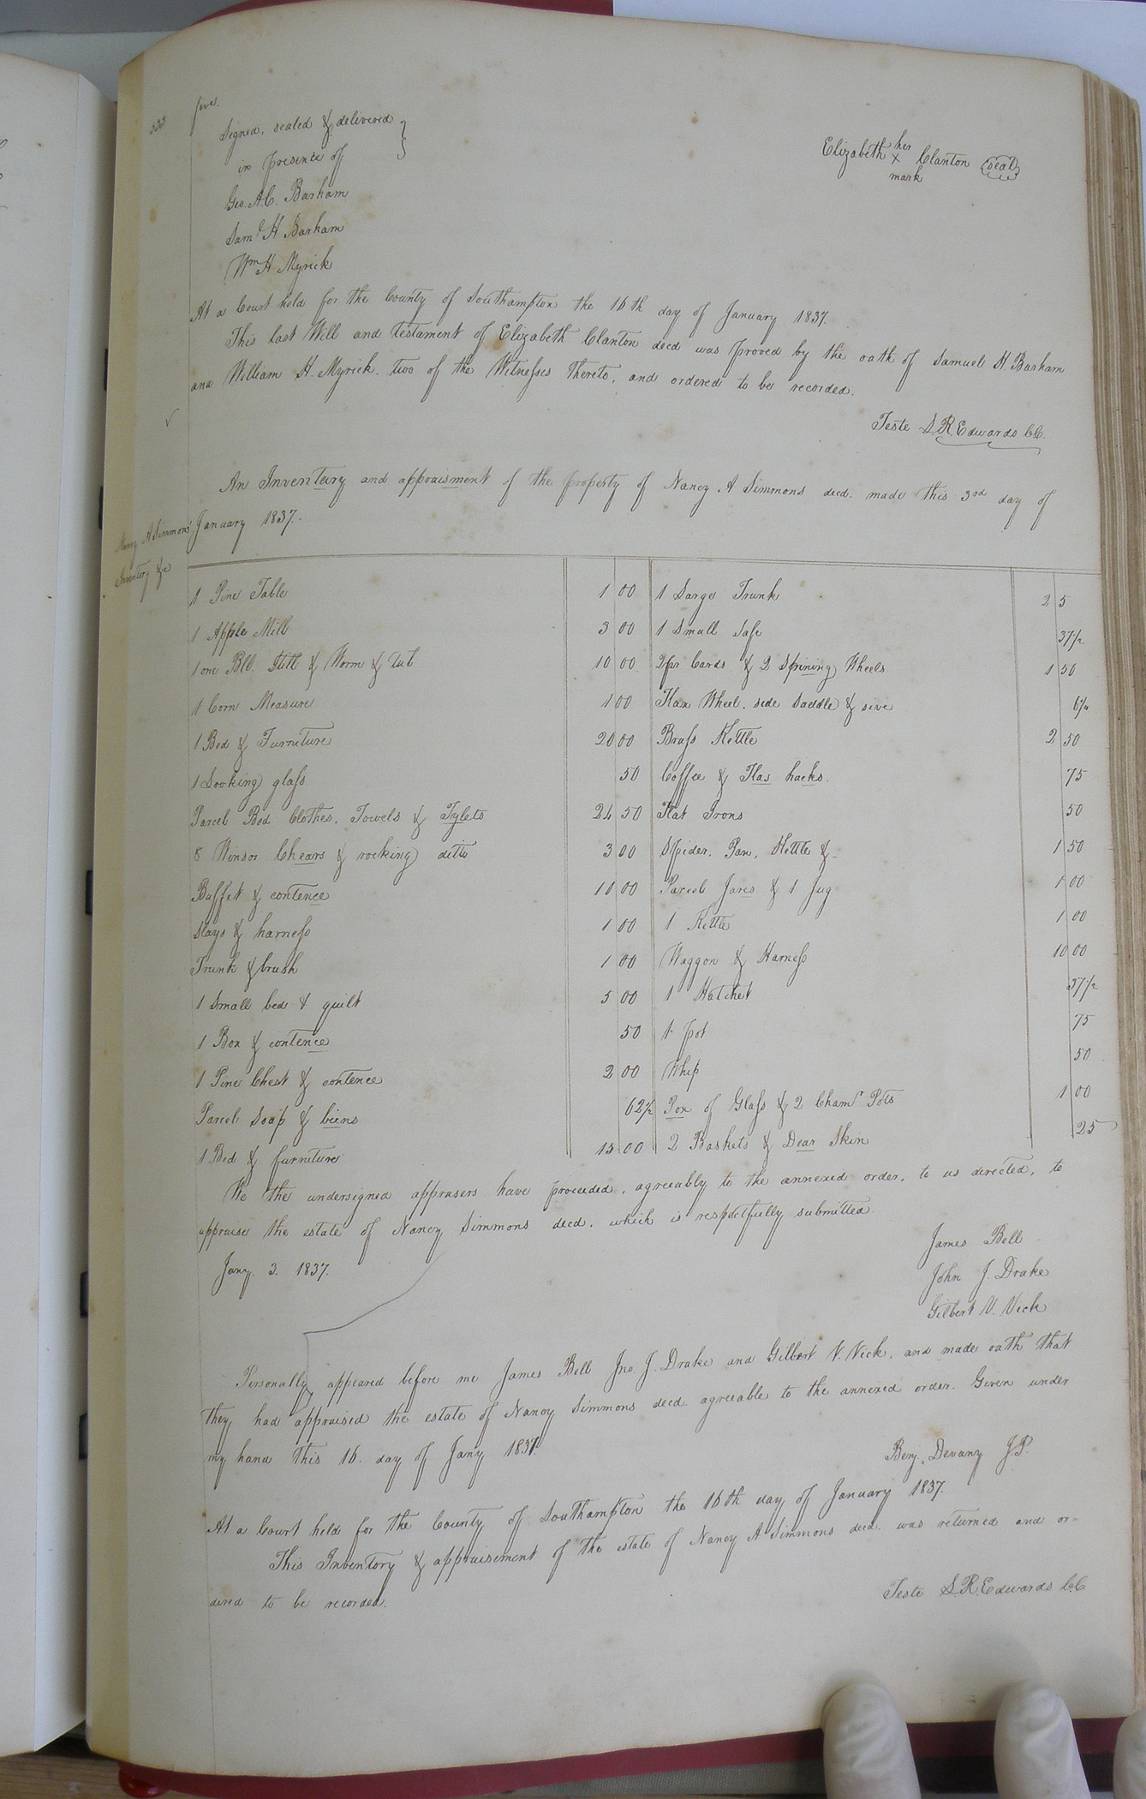 333
five.
Signed, sealed & delivered
in presence of
Geo. A.C. Barham
Saml H Barham
Wm H Myrick
Elizabeth her x mark Clanton (seal)
At a Court held for the County of Southampton the 16th day of January 1837.
This last Will and testament of Elizabeth Clanton decd was proved by the oath of Samuel H. Barham
and William H. Myrick two of the Witnesses thereto, and ordered to be recorded.
Teste S.R. Edwards CC.
An Inventory and appraisment of the property of Nancy A Simmons decd. made this 3rd day of
January 1837.
Nancy A Simmons'
Inventory &c
1 Pine Table 1 00
1 Apple Mill 3 00
1 one Bll. Still & Worm & Tub 10 00
1 Corn Measure 1 00
1 Bed & Furniture 20 00
1 Looking glass 50
Parcel Bed Clothes, Towels & Tylets 24 50
8 Winsor Chears & rocking ditto 3 00
Buffet & contence 10 00
Slays & harness 1 00
Trunk & brush 1 00
1 Small bed & quilt 5 00
1 Box & contence 50
1 Pine Chest & contence 2 00
Parcel Soap & beens 62½
1 Bed & furniture 15 00
1 Large Trunk 2 5
1 Small Safe 37½
2 pr Cards & 2 Spining Wheels 1 50
Flax Wheel, side Saddle & sive 6¼
Brass Kettle 2 50
Coffee & Flax hacks. 75
Flat Irons 50
Spider, Pan, Kettle & 1 50
Parcel Jares & 1 Jug 1 00
1 Kettle 1 00
Waggon & Harness 10 00
1 Hatchet 37½
1 pot 75
Whip 50
Pox of Glass & 2 Chamr Pots 1 00
2 Baskets & Dear Skin 25
We the undersigned apprasers have proceeded, agreeably to the annexed order, to us directed, to
appraise the estate of Nancy Simmons decd. which is respectfully submitted.
Jany. 3. 1837.
James Bell
John J. Drake
Gilbert V. Vick
Personally appeared before me James Bell Jno. J. Drake and Gilbert V. Vick, and made oath that
they had appraised the estate of Nancy Simmons decd agreeable to the annexed order. Given under
my hand this 16. day of Jany 1837
Benj. Devany J.P.
At a Court held for the County of Southampton the 16th day of January 1837.
This Inventory & appraisement of the estate of Nancy A Simmons decd. was returned and or-
dered to be recorded.
Teste S.R. Edwards CC